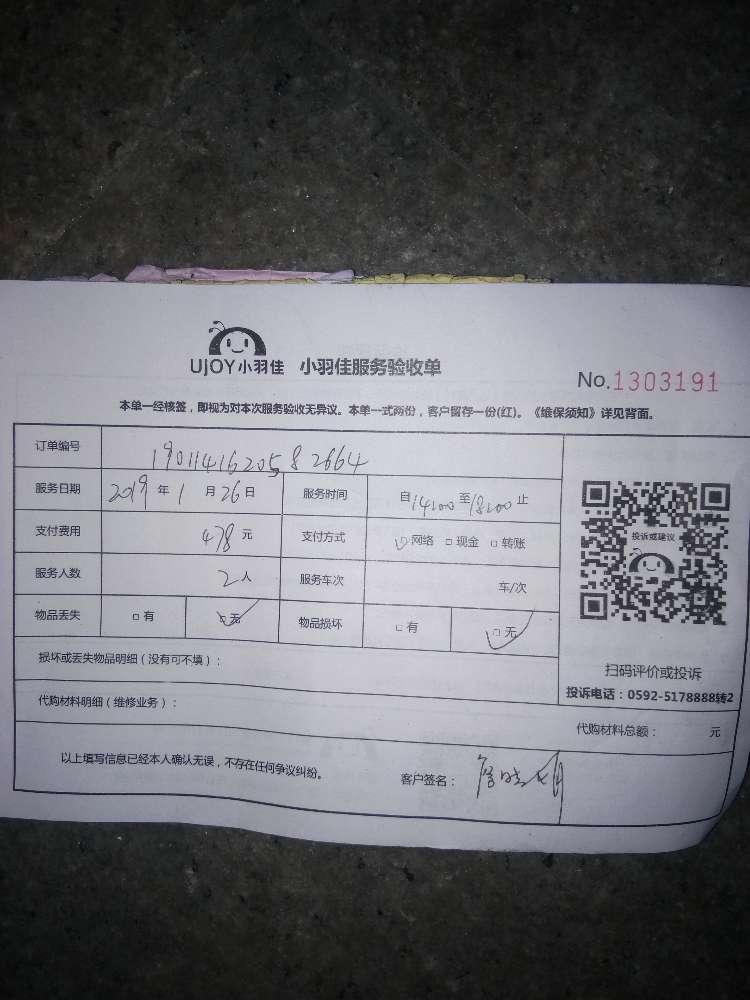 UJOY小羽佳 小羽佳服务验收单
No.1303191
本单一经核签，即视为对本次服务验收无异议。本单一式两份，客户留存一份(红)。《维保须知》详见背面。
订单编号 1901141620582664
服务日期 2019年1月26日 服务时间 自14:00至18:00止
支付费用 478元 支付方式 ☑网络 □现金 □转账
服务人数 2人 服务车次 车/次
物品丢失 □有 ☑无 物品损坏 □有 ☑无
损坏或丢失物品明细（没有可不填）：
投诉或建议
扫码评价或投诉
投诉电话：0592-5178888转2
代购材料明细（维修业务）：
代购材料总额： 元
以上填写信息已经本人确认无误，不存在任何争议纠纷。 客户签名：